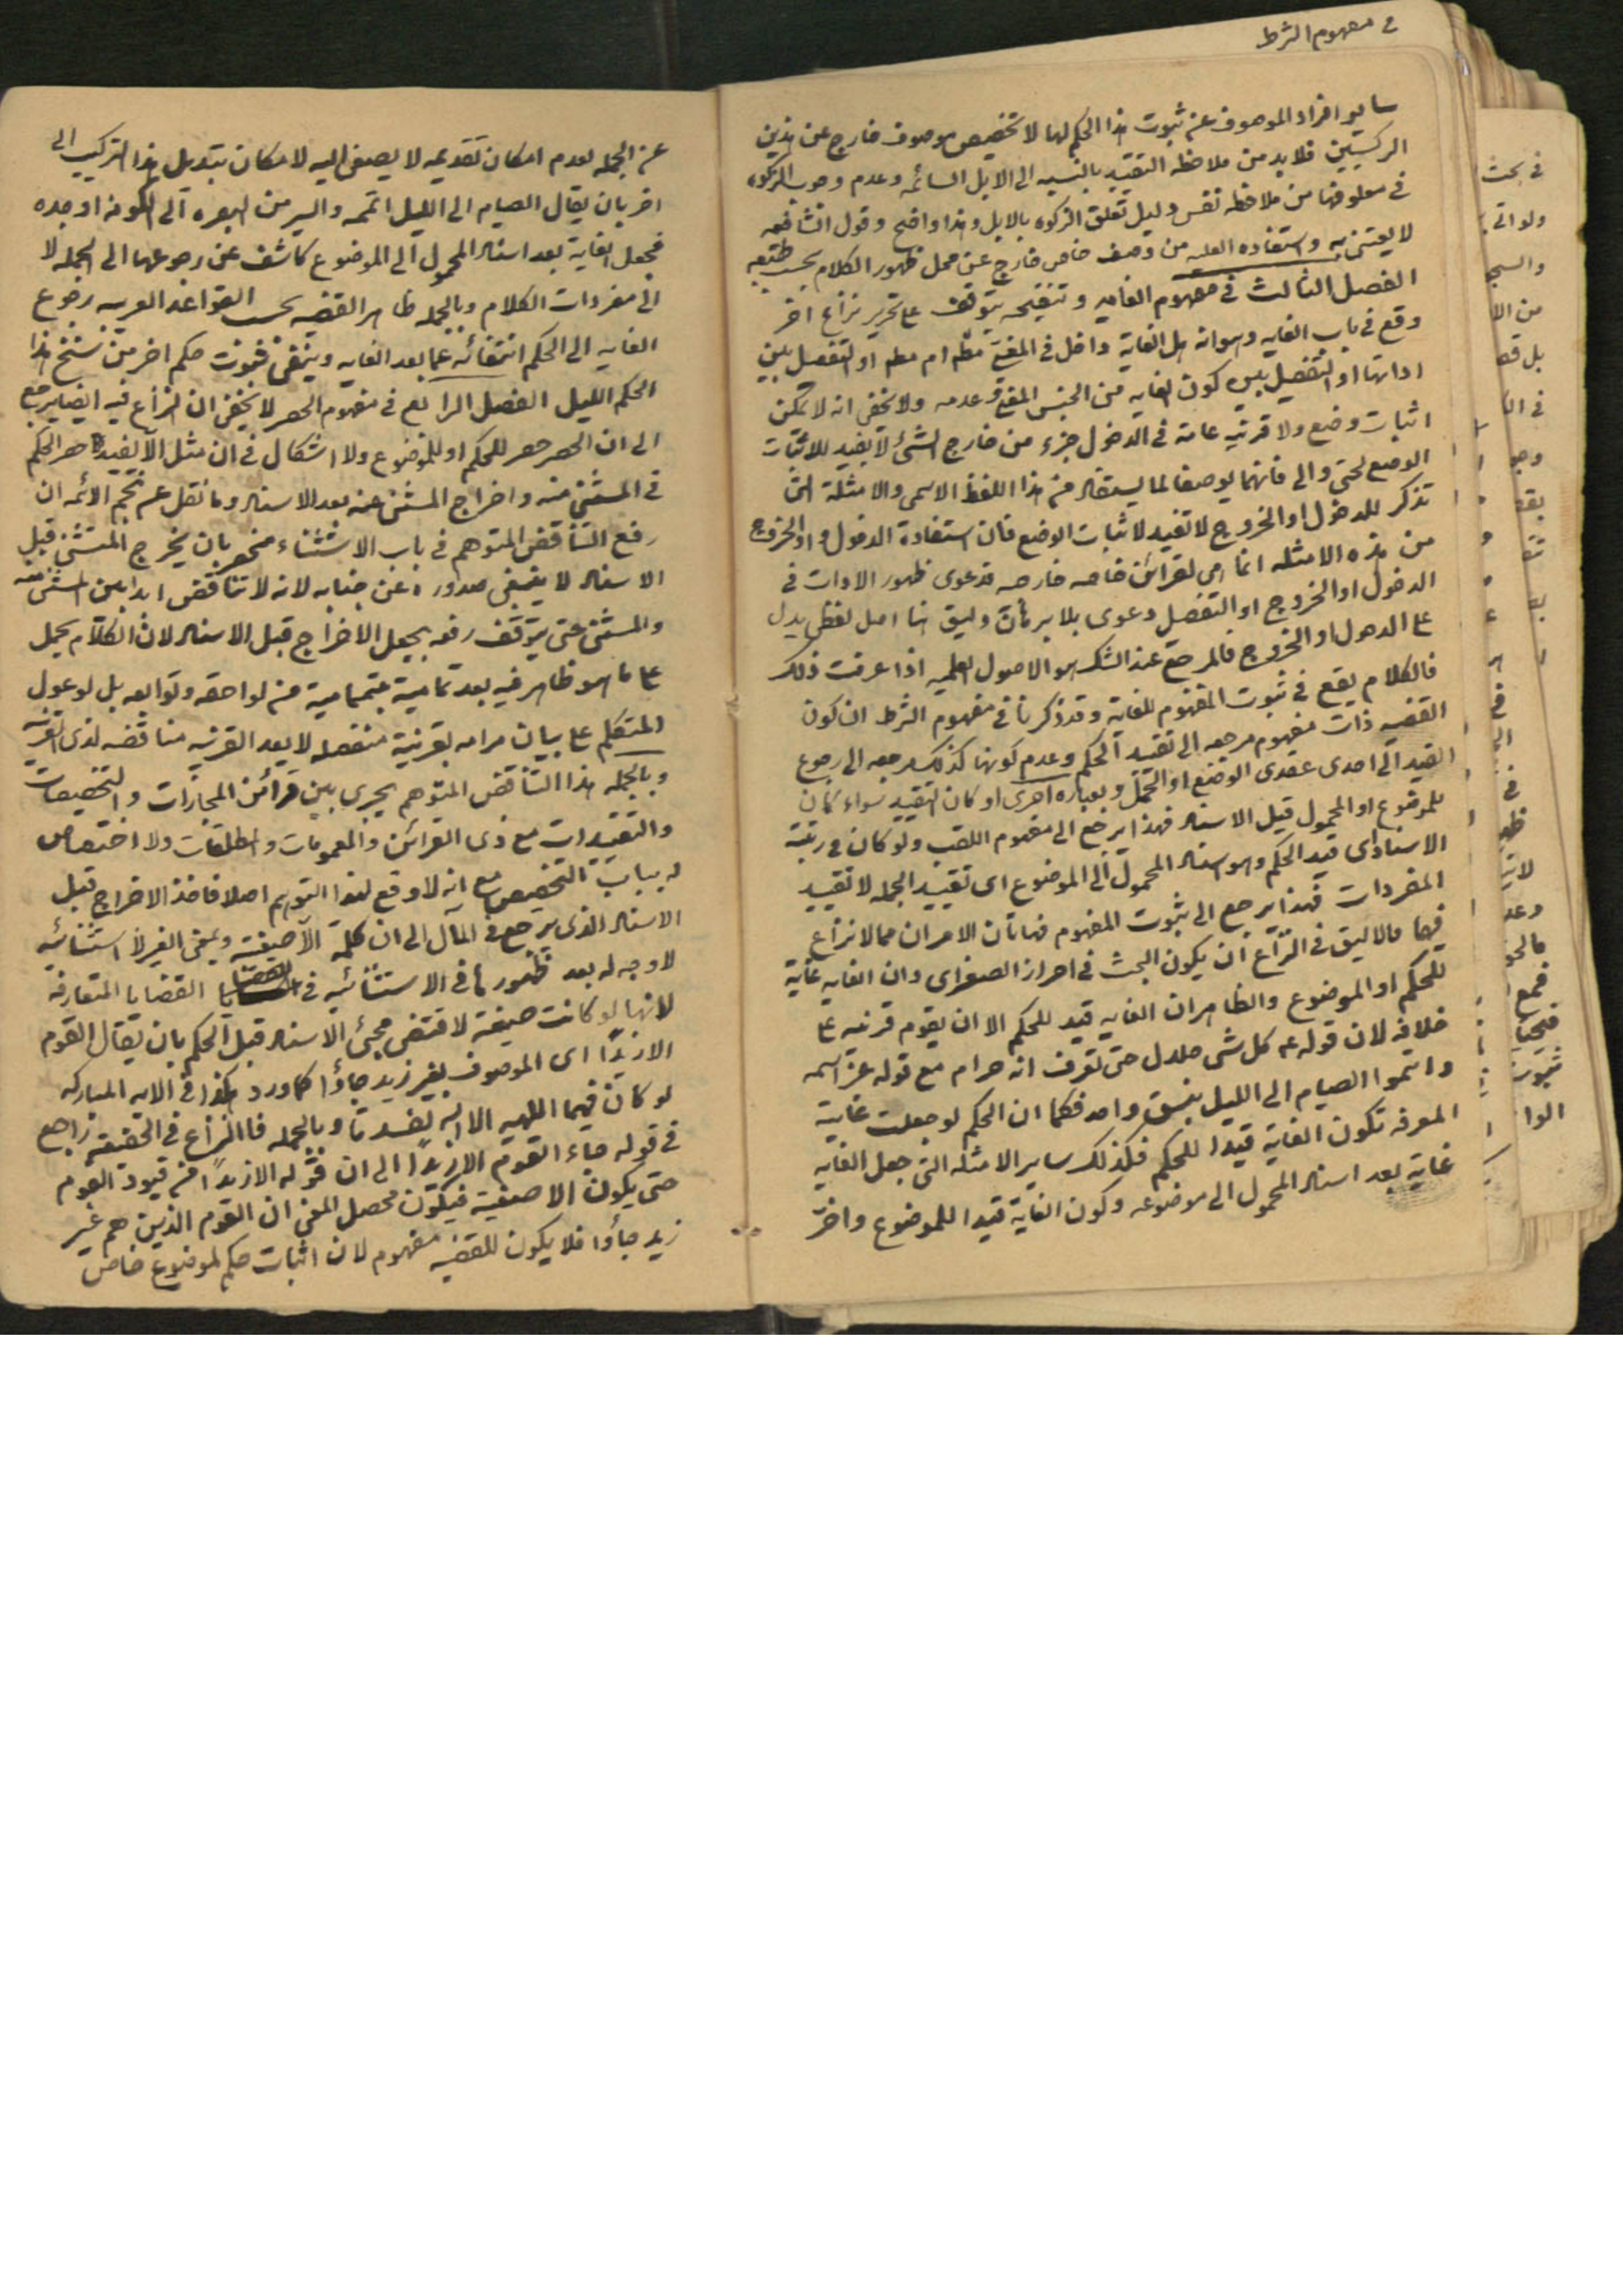 في مفهوم الشرط
ساير افراد الموصوف عن ثبوت هذا الحكم لها لا تخصيص موصوف خارج عن هذين
الركنين فلا بد من ملاحظه التقييد بالنسبه الى الابل السائمه وعدم وجوب الزكوه
في معلوفتها من ملاحظه نفس دليل تعلق الزكوه بالابل وهذا واضح وقول الشافعيه
لا يعتنى به واستفاده العليه من وصف خاص خارج عن محل ظهور الكلام بحسب طبعه
الفصل الثالث في مفهوم الغايه وتنقيحه يتوقف على تحرير نزاع اخر
وقع في باب الغايه وهو انه هل الغاية داخل في المغيى مطم ام مطم او التفصيل بين
اداتها او التفصيل بين كون الغايه من الجنس المغيى وعدمه ولا يخفى انه لا يمكن
اثبات وضع ولا قرنيه عامة في الدخول جزء من خارج الشئ لا يفيد للاثبات
الوضع لحتى والى فانهما لم يوضعا لما يستفاد من هذا اللفظ الاسمى والامثلة التى
تذكر للدخول او الخروج لا تفيد لاثبات الوضع فان استفادة الدخول او الخروج
من هذه الامثله انما هى لقرائن خاصه خارجه فدعوى ظهور الادات في
الدخول او الخروج او التفصيل دعوى بلا برهان وليس هنا اصل لفظى يدل
على الدخول او الخروج فالمرجع عند الشك هو الاصول العلميه اذا عرفت ذلك
فالكلام يقع في ثبوت المفهوم للغاية وقد ذكرنا في مفهوم الشرط ان كون
القضيه ذات مفهوم مرجعه الى تقييد الحكم وعدم كونها كذلك مرجعه الى رجوع
القيد الى احدى عقدى الوضع او الحمل وبعباره اخرى لو كان التقييد سواء كان
للموضوع او المحمول قبل الاسناد فهذا يرجع الى مفهوم اللقب ولو كان في رتبة
الاسناد اى قيد الحكم وهو اسناد المحمول الى الموضوع اى تقييد الجمله لا تقييد
المفردات فهذا يرجع الى ثبوت المفهوم فهاتان الامران مما لا نزاع
فيها فالاليق في النزاع ان يكون البحث في احراز الصغرى وان الغايه غاية
للحكم او الموضوع والظاهر ان الغايه قيد للحكم الا ان يقوم قرنيه على
خلافه لان قوله عه كل شى حلال حتى تعرف انه حرام مع قوله عز اسمه
واتموا الصيام الى الليل بنسق واحد فكما ان الحكم لو جعلت غايته
المعرفه تكون الغاية قيدا للحكم فكذلك ساير الامثله التى جعل الغايه
غاية بعد اسناد المحمول الى موضوعه وكون الغاية قيدا للموضوع واخر
عن الجمله لعدم امكان تقديمه لا يصغى اليه لامكان تبديل هذا التركيب الى
اخر بان يقال الصيام الى الليل اتمه والسير من البصره الى الكوفه اوجده
فجعل الغاية بعد اسناد المحمول الى الموضوع كاشف عن رجوعها الى الجمله لا
الى مفردات الكلام وبالجمله ظاهر القضيه بحسب القواعد العربيه رجوع
الغايه الى الحكم انتفائه عما بعد الغايه وينفى ثبوت حكم اخر من سنخ هذا
الحكم الليل الفصل الرابع في مفهوم الحصر لا يخفى ان النزاع فيه ايضا يرجع
الى ان الحصر حصر للحكم او للموضوع ولا اشكال في ان مثل الا يفيد حصر الحكم
في المستثنى منه واخراج المستثنى عنه بعد الاسناد وما نقل عن نجم الائمه ان
رفع التناقض المتوهم في باب الاستثناء منحصر بان يخرج المستثنى قبل
الاسناد لا ينبغى صدوره عن جنابه لانه لا تناقض ابدا بين المستثنى منه
والمستثنى حتى يتوقف رفعه بجعل الاخراج قبل الاسناد لان الكلام يحمل
على ما هو ظاهر فيه بعد تمامية متمماميه من لواحقه وتوابعه بل لو عول
المتكلم على بيان مرامه بقرنية منفصله لا يعد القرنيه مناقضه لذى القرنيه
وبالجمله هذا التناقض المتوهم يجرى بين قرائن المجازات والتخصيصات
والتقييدات مع ذى القرائن والعمومات والمطلقات ولا اختصاص
له بباب التخصيص مع انه لا وقع لهذا التوهم اصلا فاخذ الاخراج قبل
الاسناد الذى يرجع في المآل الى ان كلمة الا صفية وبمعنى الغير لا استثنائيه
لا وجه له بعد ظهورها في الاستثنائيه في القضايا المتعارفه
لانها لو كانت صفية لاقتضى مجئ الاسناد قبل الحكم بان يقال القوم
الا زيدا اى الموصوف بغير زيد جاؤا كما ورد هكذا في الايه المباركه
لو كان فيهما الهه الا الله لفسدتا وبالجمله فالنزاع في الحقيقه راجع
في قوله جاء القوم الا زيدا الى ان قوله الا زيدا من قيود القوم
حتى يكون الا صفية فيكون محصل المعنى ان القوم الذين هم غير
زيد جاؤا فلا يكون للقضيه مفهوم لان اثبات حكم لموضوع خاص